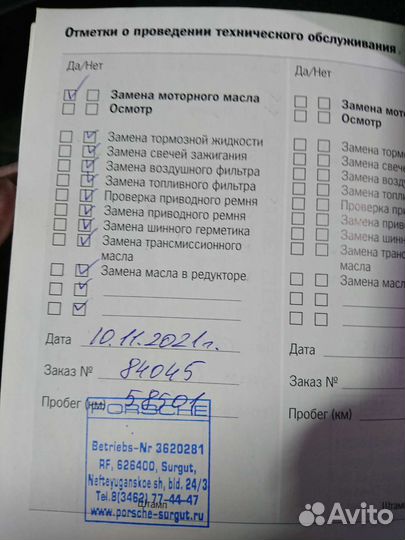 Отметки о проведении технического обслуживания
Да/Нет
Замена моторного масла
Осмотр
Замена тормозной жидкости
Замена свечей зажигания
Замена воздушного фильтра
Замена топливного фильтра
Проверка приводного ремня
Замена приводного ремня
Замена шинного герметика
Замена трансмиссионного
масла
Замена масла в редукторе
Дата 10.11.2021г.
Заказ № 84045
Пробег (км) 58501
PORSCHE
Betriebs-Nr 3620281
RF, 626400, Surgut,
Nefteyuganskoe sh, bld. 24/3
Tel.8(3462) 77-44-47
www.porsche-surgut.ru
Штамп
Да/Нет
Замена мото
Осмотр
Замена тормо
Замена свече
Замена возду
Замена топли
Проверка при
Замена приво
Замена шинн
Замена транс
масла
Замена масл
Дата
Заказ №
Пробег (км)
Штамп
Avito